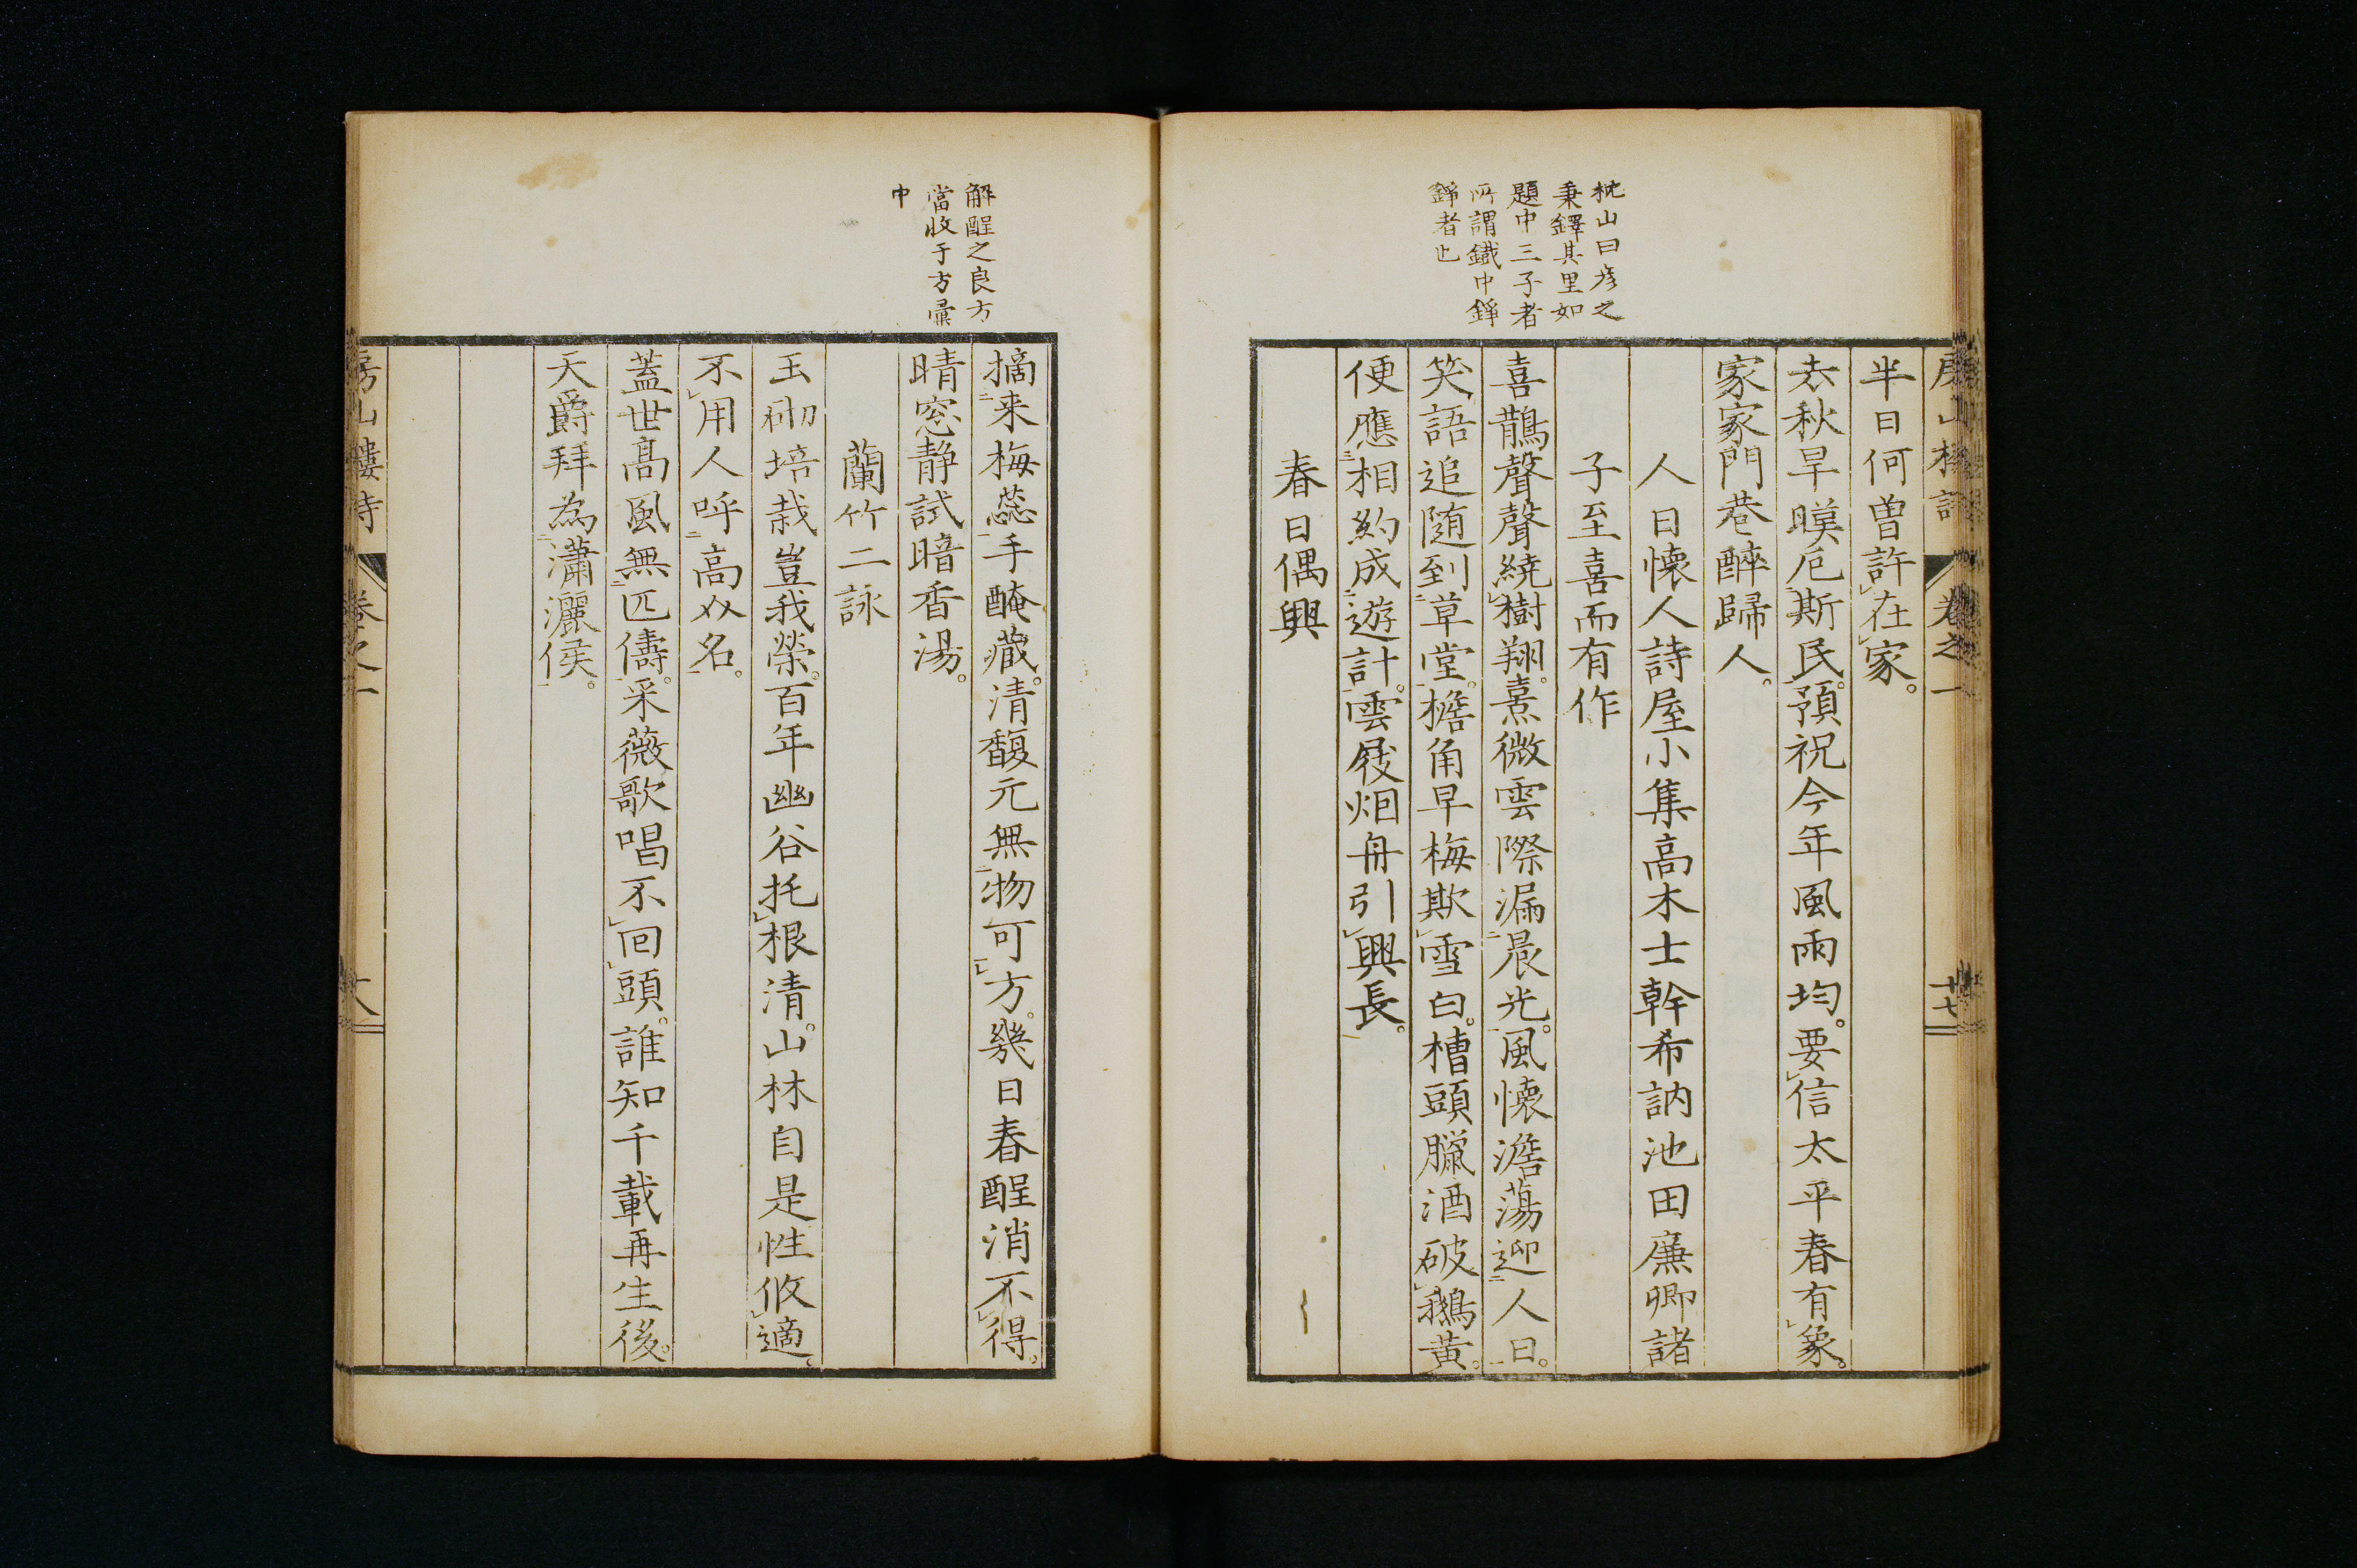 枕山曰彦之
秉鐸其里如
題中三子者
所謂鐵中錚
錚者也
半日何曽許在家。
去秋旱暵厄斯民。預祝今年風雨均。要信太平春有象。
家家門巷醉歸人。
人日懐人詩屋小集高木士幹希訥池田廉卿諸
子至喜而有作
喜鵲聲聲繞樹翔。熹微雲際漏晨光。風懐澹蕩迎人日。
笑語追随到草堂。檐角早梅欺雪白。槽頭臘酒破鵝黄。
便應相約成遊計。雲屐烟舟引興長。
春日偶興
卷之一
十七
解酲之良方
當收于方彙
中
摘来梅蕊手醃藏。清馥元無物可方。幾日春酲消不得。
晴窓静試暗香湯。
蘭竹二詠
玉砌培栽豈我榮。百年幽谷托根清。山林自是性攸適。
不用人呼高㕛名。
蓋世髙風無匹儔。采薇歌唱不囘頭。誰知千載再生後。
天爵拜為瀟灑侯。
房山樓詩
卷之一
十八